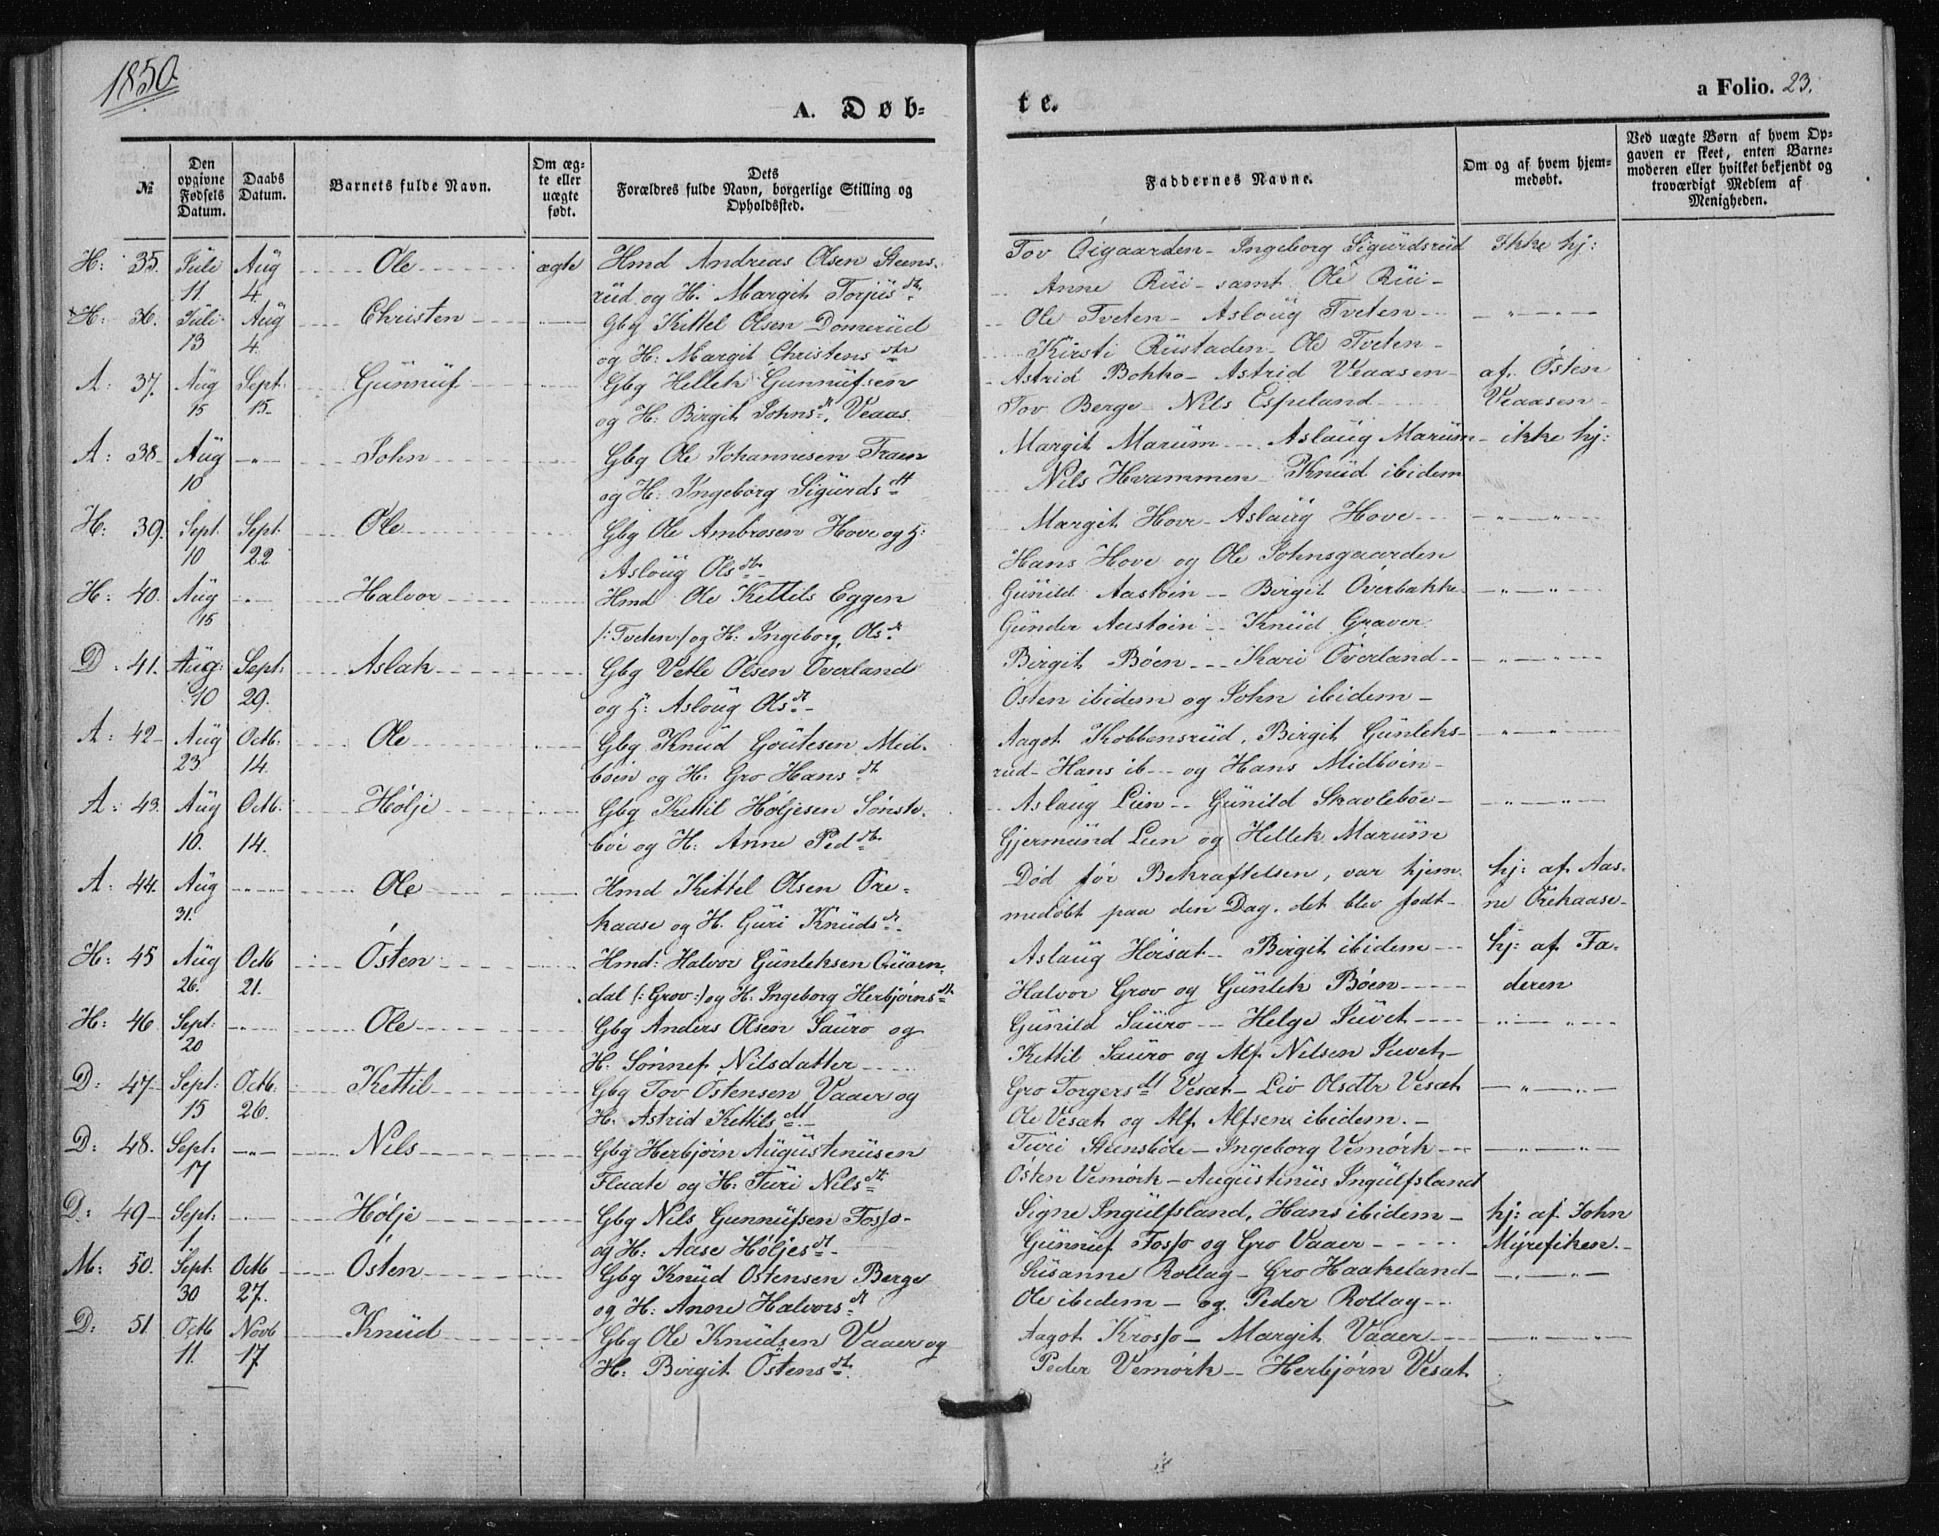 1850.
A. Døb-
te.
a Folio. 23.
№
Den opgivne Fødsels Datum.
Daabs Datum.
Barnets fulde Navn.
Om ægte eller uægte født.
Dets Forældres fulde Navn, borgerlige Stilling og Opholdssted.
Faddernes Navne.
Om og af hvem hjemmedøbt.
Ved uægte Børn af hvem Opgaven er skeet, enten Barnemoderen eller hvilket bekjendt og troværdigt Medlem af Menigheden.
H: 35. Juli Aug Ole ægte Hmd Andreas Olsen Steens- Tov Øigaarden - Ingeborg Sigurdsrud Ikke hj:
11. 4. rud og H. Margit Torjus dtr Anne Rui - samt Ole Rui -
H: 36. Juli Aug Christen Gbg Kittel Olsen Domerud Ole Tveten - Asloug Tveten - " - " -
13 4. og H: Margit Christens dtr Kirsti Rustaden - Ole Tveten -
A: 37. Aug Sept: Gunnuf Gbg Hellek Gunnufsen Astrid Bokko - Astrid Veaasen - af Østen
15 15. og H: Birgit Johns dt. Veaas. Tov Berge - Nils Espeland Veaasen -
A: 38 Aug - " - John Gbg Ole Johannesen Traen Margit Marum - Aslaug Marum - ikke hj:
10 og H: Ingeborg Sigurds dt Nils Hvammen - Knud ibidem
H: 39. Sept. Sept. Ole Gbg Ole Ambrosen Hove og H: Margit Hove - Aslaug Hove - " - " -
10 22 Asloug Ols dtr Hans Hove og Ole Johnsgaarden
H: 40. Aug - " - Halvor Hmd Ole Kettils Eggen Gunild Aastøin - Birgit Överbakke - " - " -
15 /: Tveten :/ og H: Ingeborg Ols dt Gunder Austoin - Knud Graver
D: 41. Aug: Sept: Aslak Gbg Vetle Olsen Överland Birgit Bøen - Kari Överland - " - " -
10 29. og H: Asloug Ols dt - Østen ibidem og John ibidem -
A: 42 Aug Octb. Ole Gbg Knud Goutesen Mid- Aagot Kobbensrud, Birgit Gunleks- - " - " -
23 14. bøin og H: Gro Hans dt rud - Hans ib - og Hans Midbøin -
A: 43. Aug Octb. Hølje Gbg Kettil Høljesen Sønste- Aslaug Lien - Gunild Skavleboe - - " - " -
10. 14. bøi og H: Anne Ped dtr Gjermund Lien og Hellek Marum
A: 44. Aug - " - Ole Hmd Kittel Olsen Øre- Død før Bekræftelsen, var hjem- hj: af Aas-
31. kaase og H. Guri Knuds dt - medøbt paa den Dag det blev født - ne Ørekaase -
H: 45 Aug Octb Østen Hmd: Halvor Gunleksen Quaern- Aslaug Høisæt - Birgit ibidem - hj: af Fa-
26. 21. dal /: Grov :/ og H: Ingeborg Herbjørns dt Halvor Grov og Gunlek Bøen - deren
H: 46 Sept: - " - Ole Gbg Anders Olsen Sauro og Gunild Sauro - Helge Juvet - " - " -
20 H: Sønnef Nilsdatter Kettil Sauro og Alf Nilsen Juvet -
D: 47. Sept: Octb. Kettil Gbg Tov Østensen Vaaer og Gro Torgers dt Vesæt - Liv Olsdtr Vesæt - " - " -
15 26. H: Astrid Kettils dt - Ole Vesæt og Alf Alfsen ibidem. -
D: 48. Sept: - " - Nils Gbg Herbjørn Augustinusen Turi Steensbøle - Ingeborg Vemørk - - " - " -
17 Flaate og H: Turi Nils dt Østen Vemørk - Augustinus Ingulfsland
D: 49 Sept: - " - Hølje Gbg Nils Gunnufsen Fosso - Signe Ingulfsland, Hans ibidem - hj: af John
1 og H: Aase Høljes dt - Gunnuf Fosso og Gro Vaaer - Myrefiken. -
M: 50. Sept: Octb Østen Gbg Knud Ostensen Berge Susanne Rollag - Gro Haakeland - - " - " -
30 27. og H: Anne Halvors dt Ole ibidem - og Peder Rollag -
D: 51 Octb Novb Knud Gbg Ole Knudsen Vaaer og Aagot Krosso - Margit Vaaer - - " - " -
11. 17 H: Birgit Östens dt. Peder Vemørk - Herbjørn Vesæt